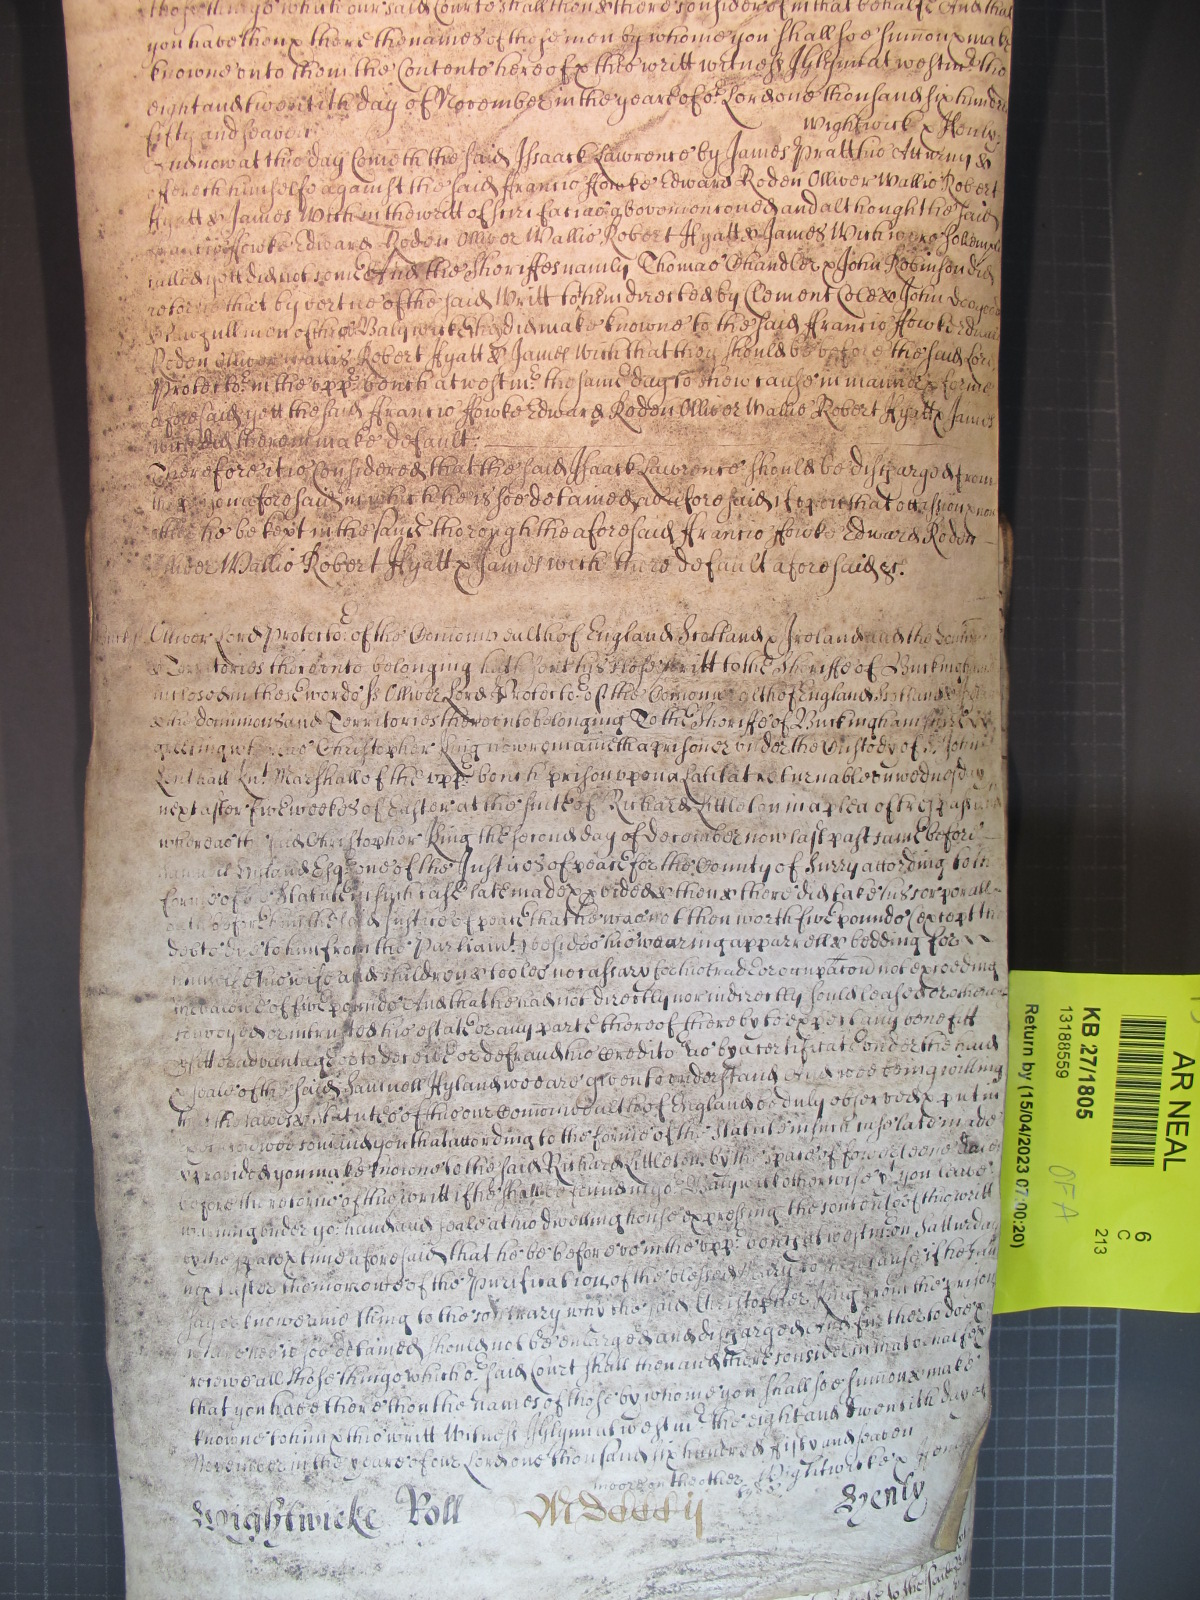 those things which our said Court shall then & there consider of in that behalfe And that
you have then & there the names of those men by whome you shall soe sumon & make
knowne unto them the Contents hereof & this writt witnes J Glynn at westmr the
eight and twentith day of November in the yeare of or Lord one thousand six hundred
fifty and seaven
Wightwick & Henly
And now at this day Cometh the said Isaack Lawrence by James Pratt his Atturny &
offereth himselfe against the said Francis Fowke Edward Roden Olliver Wallis Robert
Hyatt & James With in the writt of scire facias above mentioned and although the said
Francis Fowke Edward Roden Olliver Wallis Robert Hyatt & James With were solempnly
called yett did not come And the Sheriffes namly Thomas Chandler & John Robinson did
retorne that by vertue of the said Writt to them directed by Clement Cole & John
lawfull men of there Baylywick they did make knowne to the said Francis Fowke Edward
Roden Olliver Wallis Robert Hyatt & James With that they should be before the said Lord
Protector in the uppr bench at westmr the same day to shew cause in manner & forme
aforesaid yett the said Francis Fowke Edward Roden Olliver Wallis Robert Hyatt & James
With did thereon make default:
Therefore it is Considered that the said Isaack Lawrence should be discharged from
the prison aforesaid in which he is soe detained as aforesaid if upon that occassion & noe
other he be kept in the same thorough the aforesaid Francis Fowke Edward Roden
Olliver Wallis Robert Hyatt & James with there default aforesaid &c.
Olliver Lord Protector of the Comonwealth of England Scotland & Ireland and the Dominions
& Territories thereunto belonging hath sent his close writt to the Sheriffe of Buckingham
inclosed in these words ss Olliver Lord Protector of the Comonwealth of England Scotland &
& the dominions and Territories thereunto belonging To the Sheriffe of Buckinghamshire
greeting whereas Christopher King now remaineth a prisoner under the Custody of Sr John
Lentrall Knt Marshall of the uppr bench prison uppon a Latitat returnable on wednesday
next after five weekes of Easter at the suite of Richard Littleton in a plea of trespas and
whereas the said Christopher King the second day of december now last past came before
Samuel Hyland Esqr one of the Justices of peace for the County of Surry according to the
forme of the Statute in such case late made & provided & then & there did take his corporall
oath before him the said Justice of peace that he was not then worth five pounds (except the
debts due to him from the Parliamt) besides his wearing apparrell & bedding for
himselfe his wife and children & tooles necessary for his trade or occupacon not exceeding
the value of five pounds And that he had not directly nor indirectly sould leased or otherwise
conveyed or intrusted his estate or any parte thereof thereby to expect any benefitt
profitt or advantage or to deceive or defraud his Creditors as by a certificate under the hand
& seale of the said Samuell Hyland wee are given to understand And wee being willing
that the lawes & statutes of this our Comonwealth of England be duly observed & put in
wee comand you that according to the forme of the Statute in such case late made
& provided you make knowne to the said Richard Littleton by the space of fowerteene daies
before the retorne of this writt if he shall be found in yor Baylywick otherwise yt you leave
warning under yor hand and seale at his dwelling house expressing the contents of this writt
by the space & time aforesaid that he be before us in the uppr bench at westmr on Satturday
next after the morrow of the Purification of the blessed Mary to shew cause if he hath
say or know anie thing to the contrary why the said Christopher King from the prison
where hee is soe detained should not be enlarged and discharged And further to doe &
receive all those things which or said Court shall then and there consider in that behalfe
that you have there then the names of those by whome you shall soe sumon & make
knowne to him & this writt Witnes J Glynn at westmr the eight and twentith day of
November in the yeare of our Lord one thousand six hundred fifty and seaven
Wightwicke & Henly
more on the other side
Wightwicke Roll Mdcccij Henly
AR NEAL
6
C
213
KB 27/1805
13188559
Return by (15/04/2023 07:00:20)
OFA